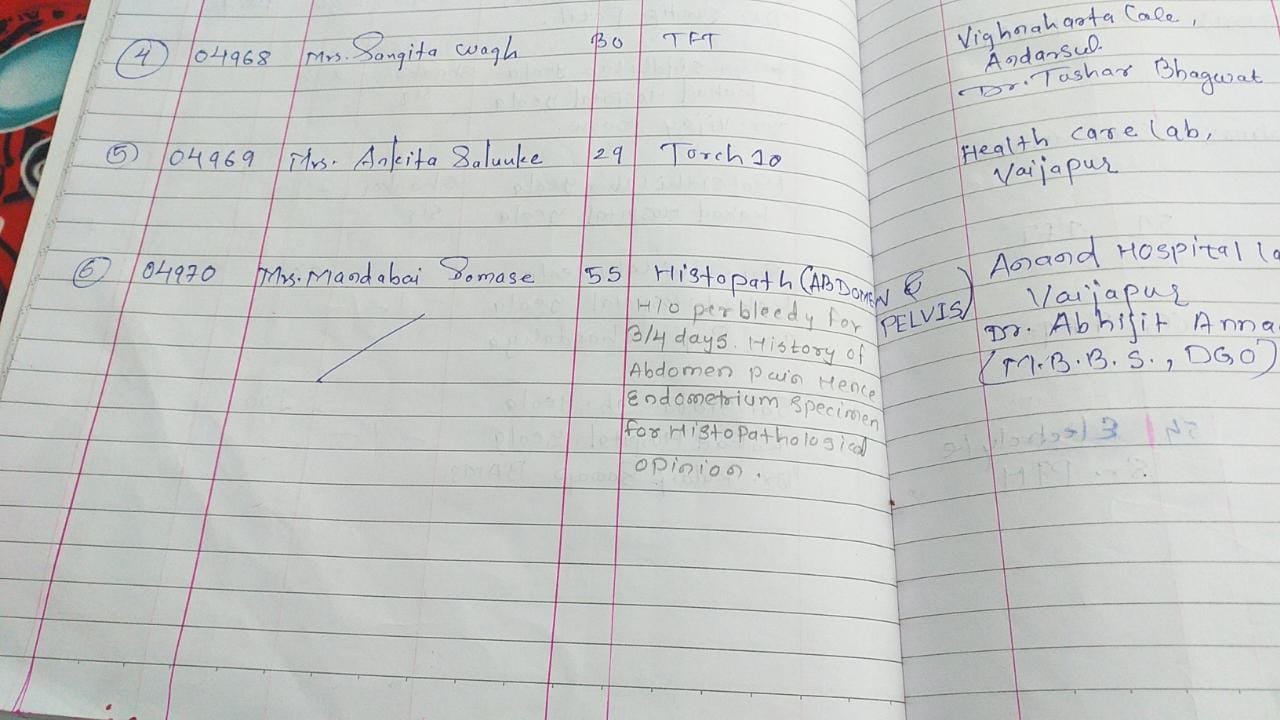 4 04968 Mrs. Sangita Wagh 30 TFT
Vighnaharta Cale,
Andarsul.
Dr. Tushar Bhagwat
5 04969 Mrs. Ankita Salunke 29 Torch 10
Health care lab,
Vaijapur
6 04970 Mrs. Mandabai Somase 55 Histopath (ABDOMEN &
PELVIS)
H/o perbleedy for
3/4 days. History of
Abdomen pain Hence
Endometrium Specimen
for Histopathological
opinion.
Anand Hospital
Vaijapur
Dr. Abhijit Anna
(M.B.B.S., DGO)